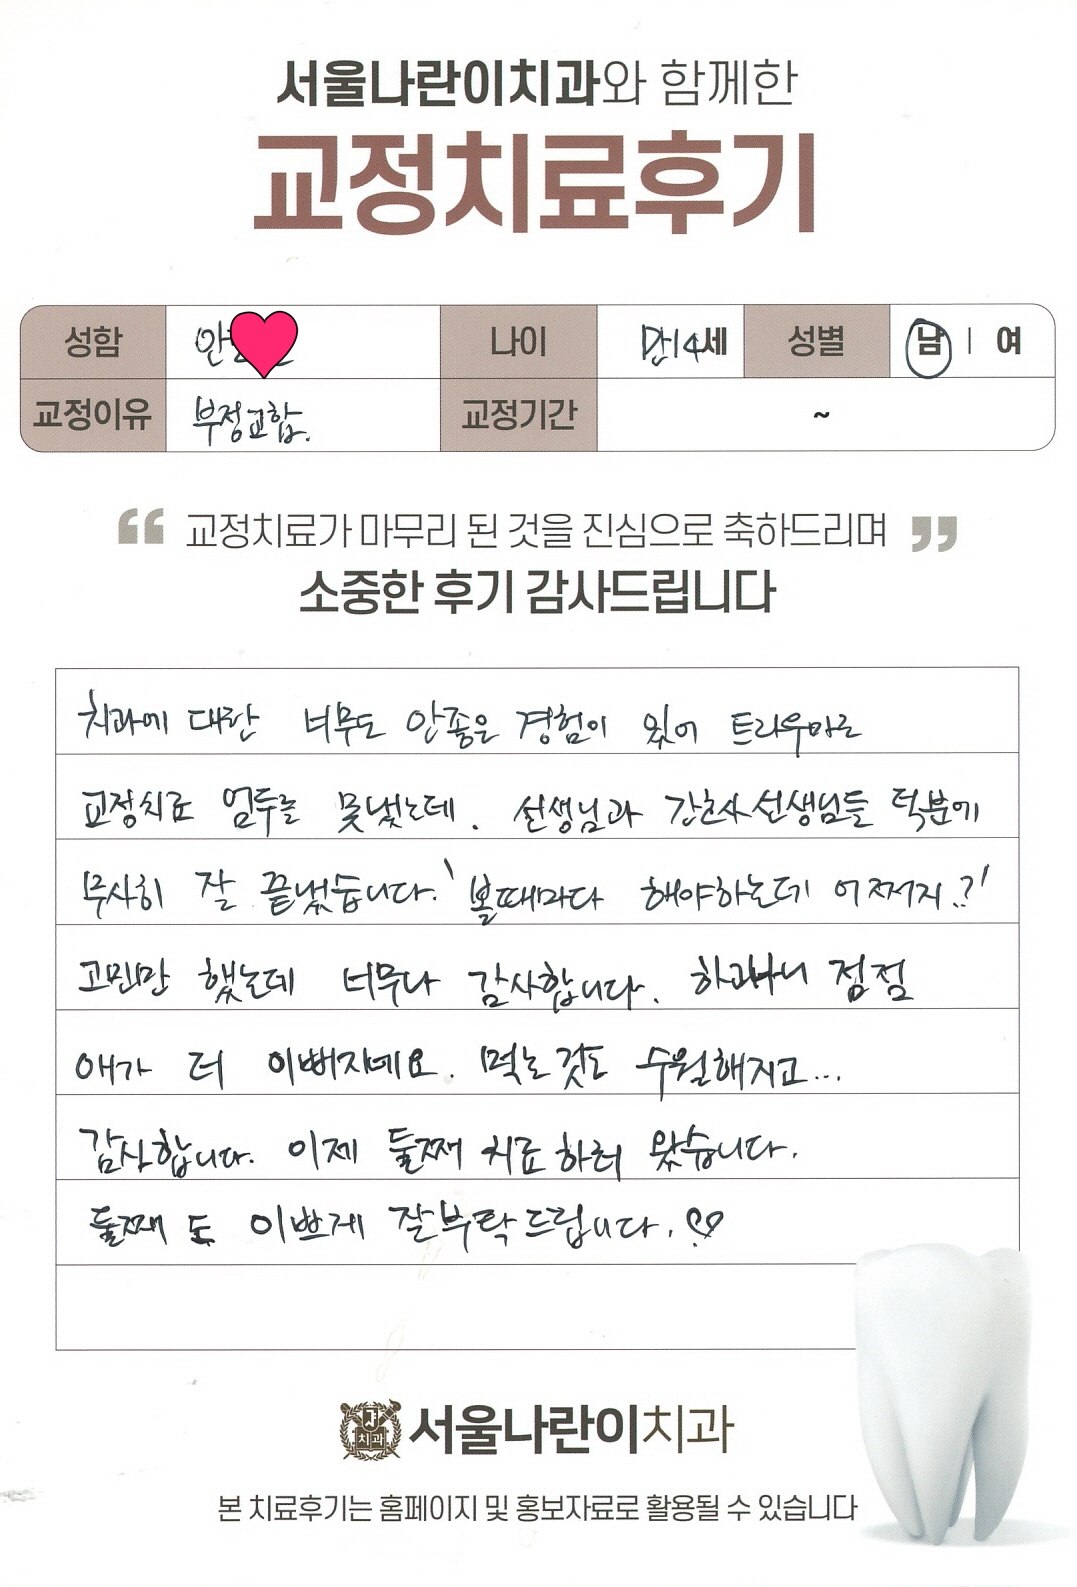 서울나란이치과와 함께한
교정치료후기
성함 안 나이 만14세 성별 남 | 여
교정이유 부정교합. 교정기간 ~
“ 교정치료가 마무리 된 것을 진심으로 축하드리며 ”
소중한 후기 감사드립니다
치과에 대한 너무도 안좋은 경험이 있어 트라우마로
교정치료 엄두를 못냈는데. 선생님과 간호사선생님들 덕분에
무사히 잘 끝냈습니다. '볼때마다 해야하는데 어쩌지.?'
고민만 했는데 너무나 감사합니다. 하고나니 점점
애가 더 이뻐지네요. 먹는것도 수월해지고...
감사합니다. 이제 둘째 치료하러 왔습니다.
둘째도 이쁘게 잘부탁드립니다. ♡
치과
서울나란이치과
본 치료후기는 홈페이지 및 홍보자료로 활용될 수 있습니다